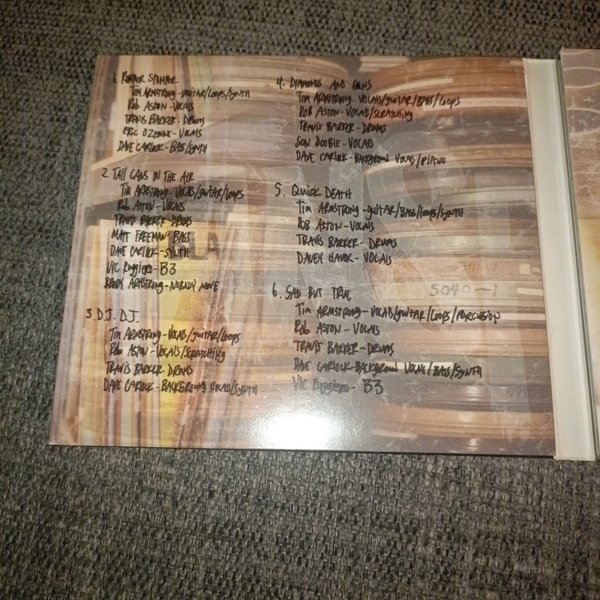 1. RUMPER STUMPER
TIM ARMSTRONG-GUITAR/LOOPS/SYNTH
ROB ASTON-VOCALS
TRAVIS BARKER-DRUMS
ERIC OZENNE-VOCALS
DAVE CARLOCK-BASS/SYNTH
2. TALL CANS IN THE AIR
TIM ARMSTRONG-VOCALS/GUITAR/LOOPS
ROB ASTON-VOCALS
TRAVIS BARKER-DRUMS
MATT FREEMAN-BASS
DAVE CARLOCK-SYNTH
VIC RUGGIERO-B3
BRODY ARMSTRONG-NOBODY MOVE
3. D.J. D.J.
TIM ARMSTRONG-VOCALS/GUITAR/LOOPS
ROB ASTON-VOCALS/SCRATCHING
TRAVIS BARKER-DRUMS
DAVE CARLOCK-BACKGROUND VOCALS/SYNTH
4. DIAMONDS AND GUNS
TIM ARMSTRONG-VOCALS/GUITAR/BASS/LOOPS
ROB ASTON-VOCALS/SCRATCHING
TRAVIS BARKER-DRUMS
SON DOOBIE-VOCALS
DAVE CARLOCK-BACKGROUND VOCALS/PIANO
5. QUICK DEATH
TIM ARMSTRONG-GUITAR/BASS/LOOPS/SYNTH
ROB ASTON-VOCALS
TRAVIS BARKER-DRUMS
DAVEY HAVOK-VOCALS
6. SAD BUT TRUE
TIM ARMSTRONG-VOCALS/GUITAR/LOOPS/PERCUSION
ROB ASTON-VOCALS
TRAVIS BARKER-DRUMS
DAVE CARLOCK-BACKGROUND VOCALS/BASS/SYNTH
VIC RUGGIERO-B3
5040-1